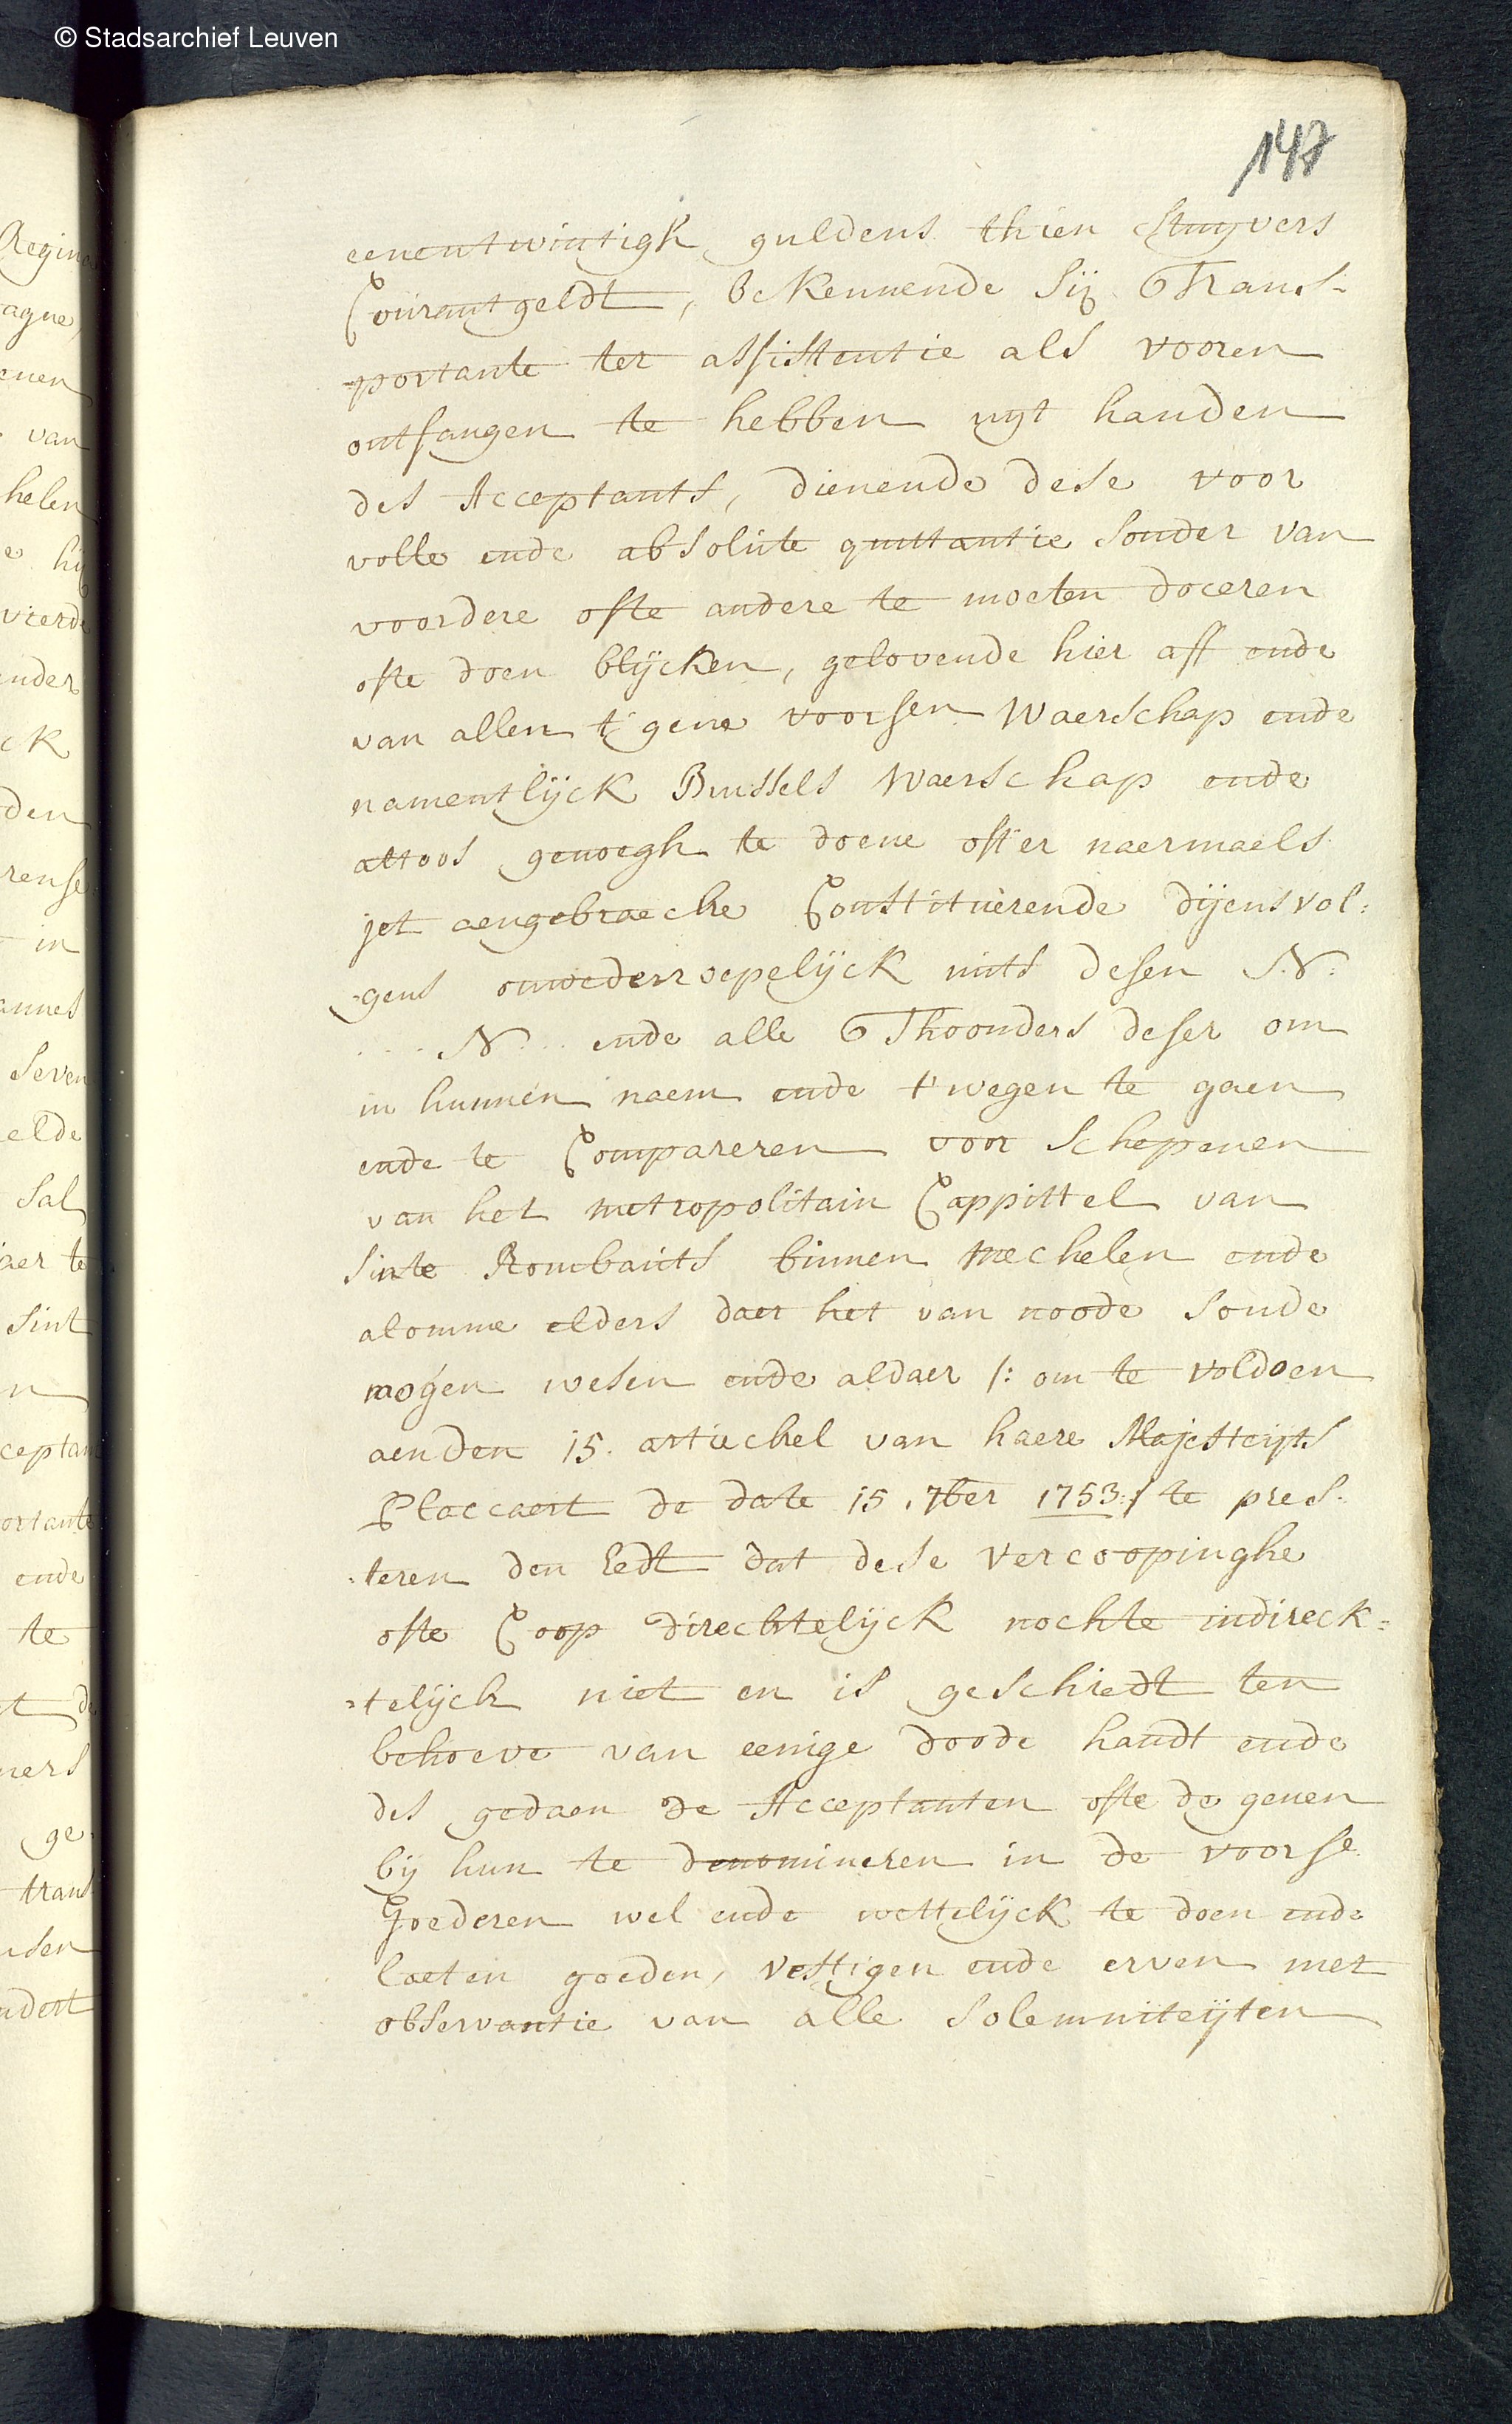 © Stadsarchief Leuven
147
eenentwintigh guldens thien stuyvers
Courant geldt, bekennende sij Trans-
-portante ter assistentie als vooren
ontfangen te hebben uyt handen
des Acceptants, dienende dese voor
volle ende absolute quittantie sonder van
voordere ofte andere te moeten doceren
ofte doen blijcken, gelovende hier aff ende
van allen t'gene voorsen Waerschap ende
namentlijck Brussels Waerschap ende
altoos genoegh te doene oft'er naermaels
jet aengebraecke Constituerende dijensvol:
-gens onwederroepelijck mits desen N:
... N... ende alle Thoonders deser om
in hunnen naem ende t'wegen te gaen
ende te Compareren voor Schepenen
van het metropolitain Cappittel van
sinte Rombauts binnen Mechelen ende
alomme elders daer het van noode soude
mogen wesen ende aldaer /: om te voldoen
aenden 15. artieckel van haere Majesteyts
Placcaert de date 15. 7ber 1753:/ te pres-
:teren den Eedt dat dese Vercoopinghe
ofte Coop direcktelijck nochte indireck=
=telijck niet en is geschiedt ten
behoeve van eenige doode handt ende
des gedaen de Acceptanten ofte de genen
bij hun te denomineren in de voorse.
Goederen wel ende wettelijck te doen ende
laeten goeden, vestigen ende erven met
observantie van alle solemniteijten